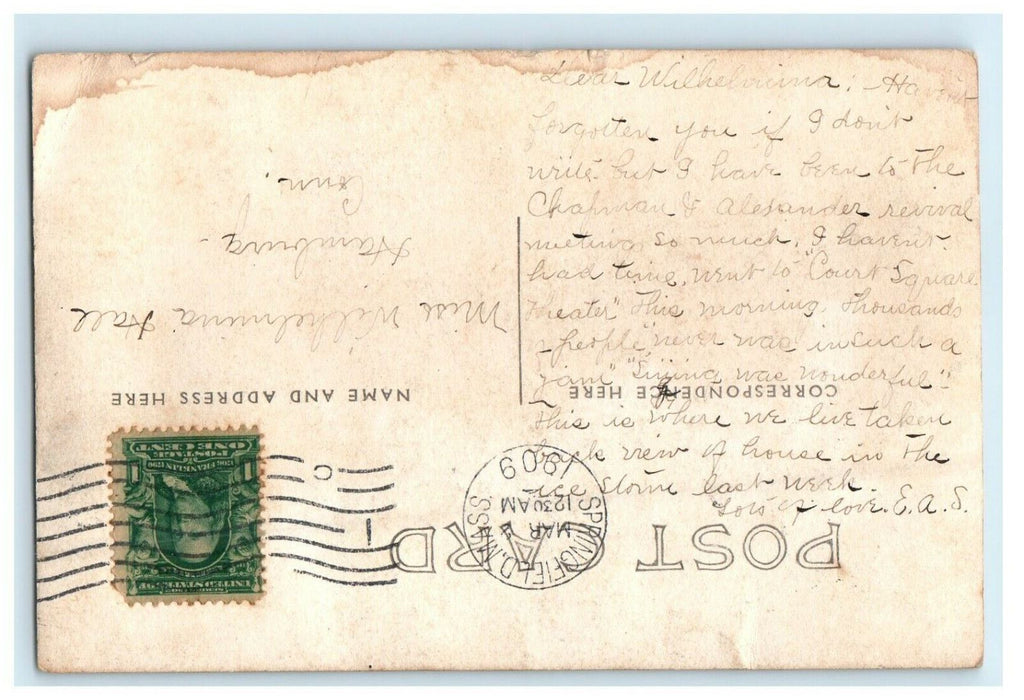 Dear Wilhelmina: Haven't
forgotten you if I don't
write but I have been to the
Chapman & Alexander revival
meeting so much, I haven't
had time, went to "Court Square
Theater" this morning, thousands
people "never was in such a
jam" "Singing was wonderful".
This is where we live taken
back view of house in the
ice storm last week.
Lots of love. E. A. S.
POST CARD
CORRESPONDENCE HERE
NAME AND ADDRESS HERE
Miss Wilhelmina Hall
Hamburg
Conn.
SPRINGFIELD, MASS.
MAR
1230 AM
1909
C
1
UNITED STATES OF
1706 FRANKLIN 1790
POSTAGE
ONE CENT
1
1